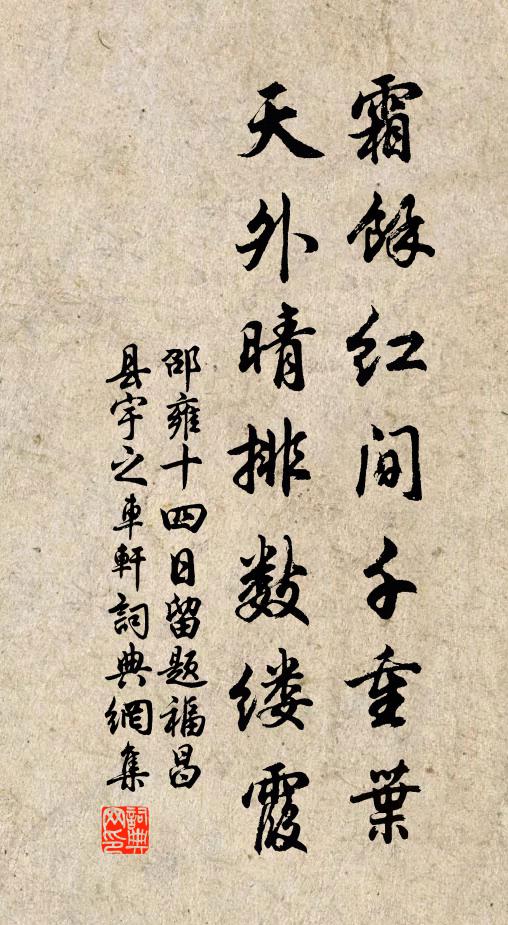 霜餘红间千重葉
天外晴排数缕霞
邵雍十四日留题福昌
县宇之車軒詞典網集
詞典网印